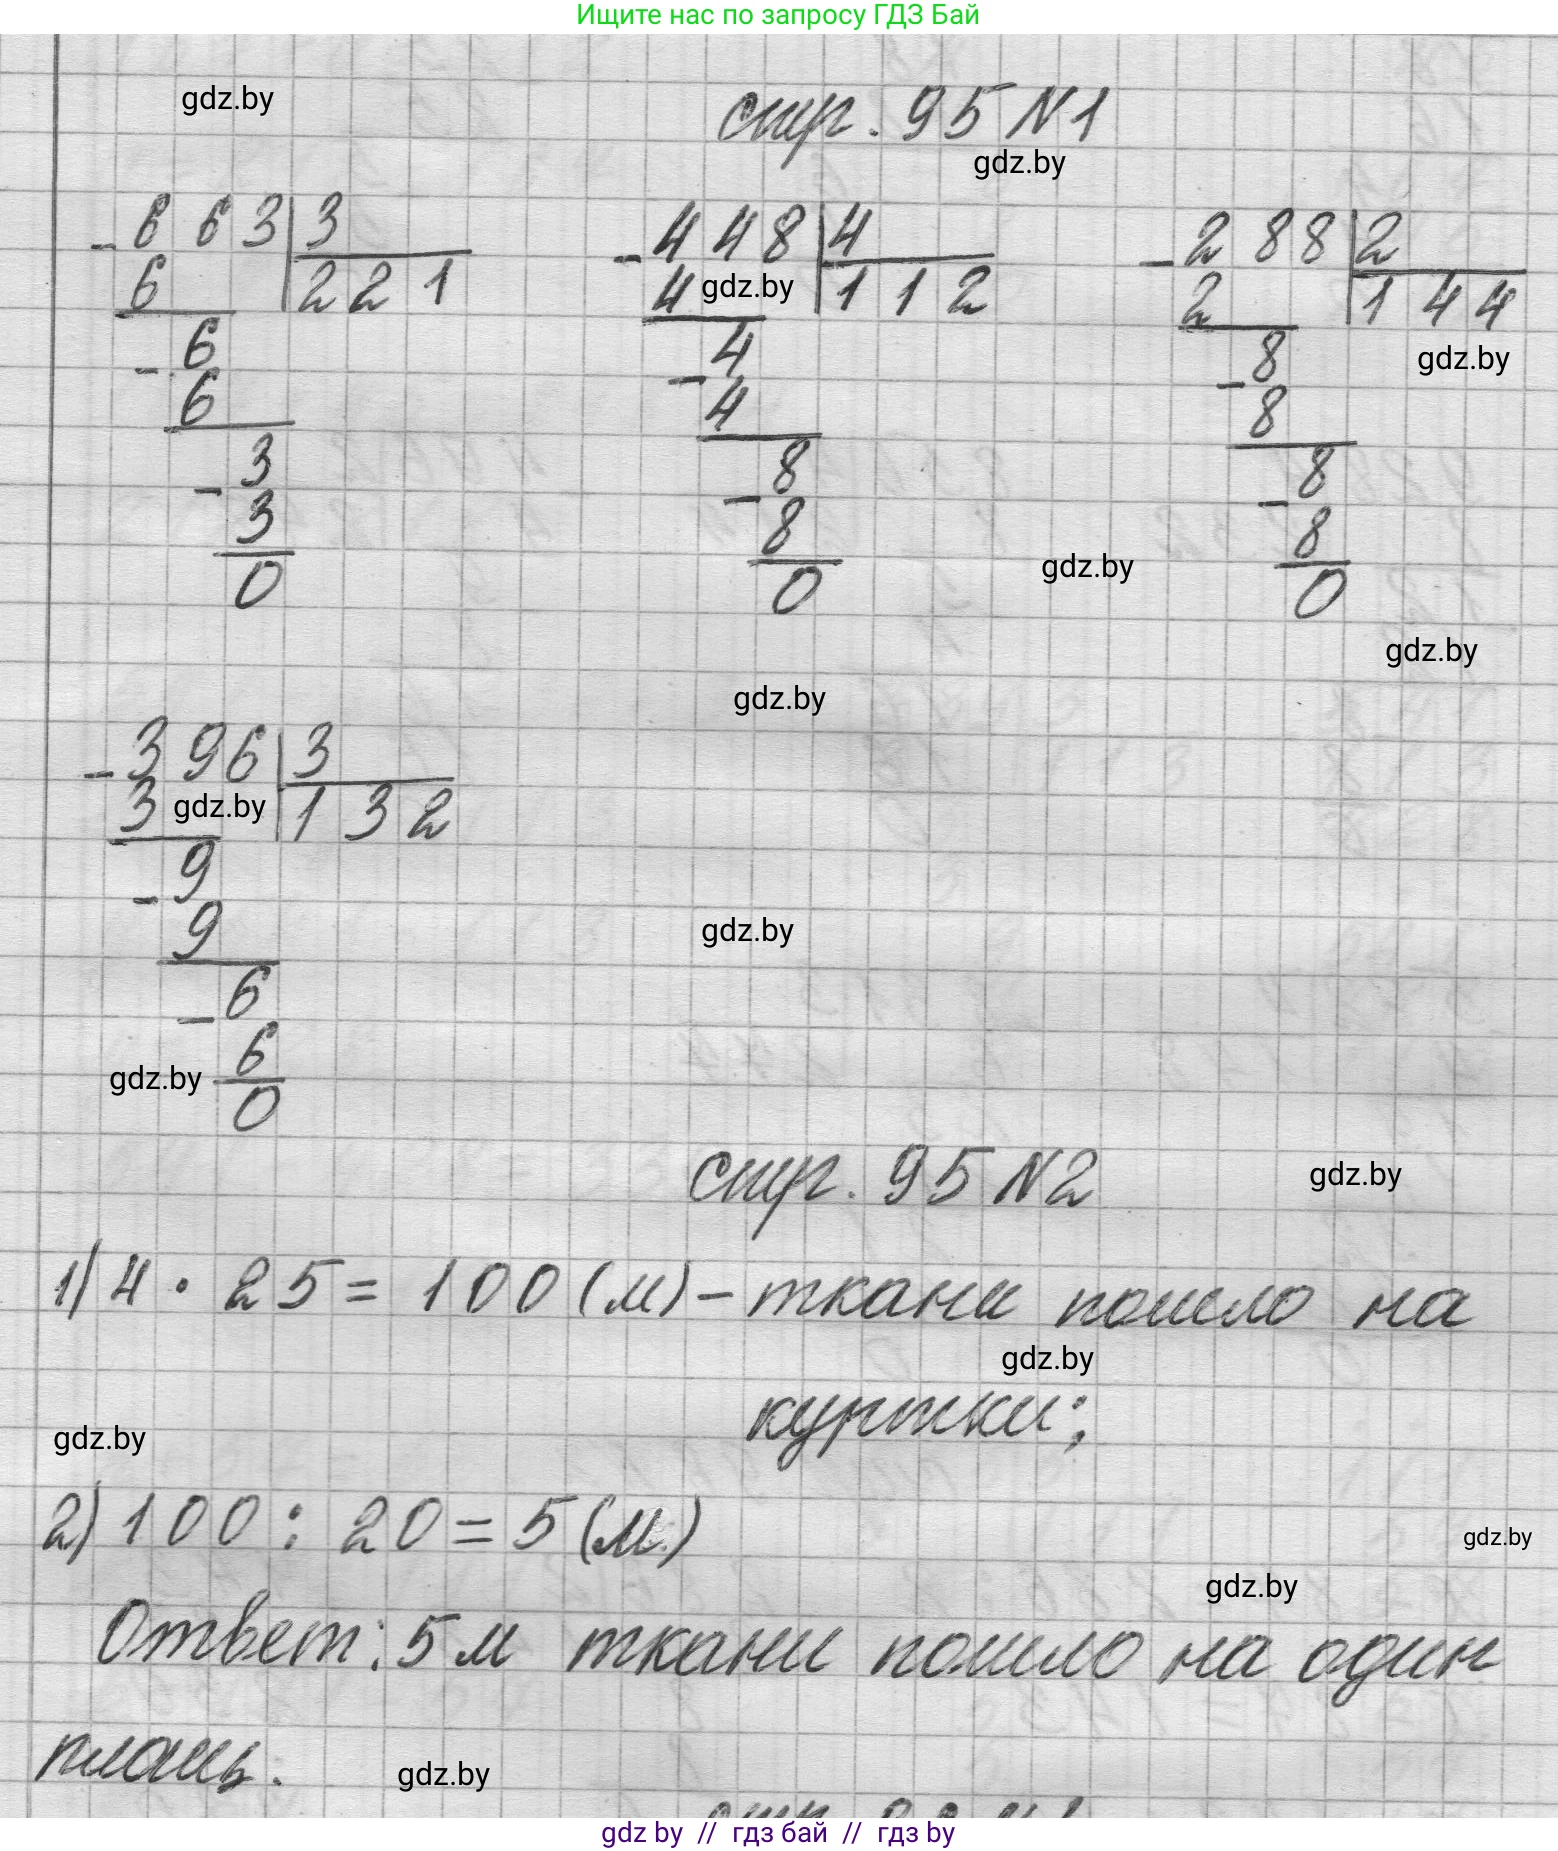 Ищите нас по запросу ГДЗ Бай
gdz.by
стр. 95 N1
gdz.by
- 663 | 3
6 | 221
- 6
6
- 3
3
0
- 448 | 4
4 gdz.by | 112
- 4
4
- 8
8
0
- 288 | 2
2 | 144
gdz.by
- 8
8
- 8
8
0
gdz.by
gdz.by
gdz.by
- 396 | 3
3 gdz.by | 132
- 9
9
gdz.by
- 6
6
gdz.by
0
стр. 95 N2
gdz.by
1) 4 · 25 = 100 (м) – ткани пошло на
gdz.by
куртки;
gdz.by
2) 100 : 20 = 5 (м.)
gdz.by
gdz.by
Ответ: 5 м ткани пошло на один
плащ.
gdz.by
gdz by // гдз бай // гдз by